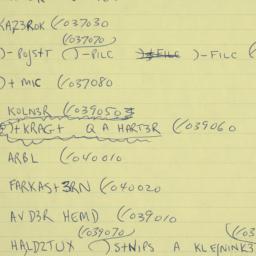 KAZ3ROK (/037030
(/037070)
)-POJST+ ()-PILC )-FILC (
)+ MIC (/037080
KOLN3R (/0390503
)+KRAG+ Q A HART3R (/039060
ARBL (/040010
FARKAS+3RN (/040020
AVD3R HEMD (/039010
(/039070) (/03
HALDZTUX ()S+NIPS A KLEJNINK3